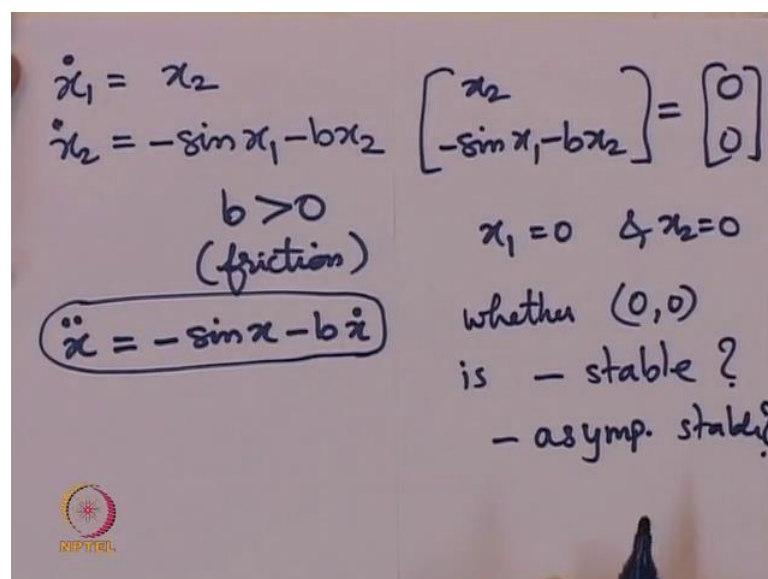 ẋ₁ = x₂
ẋ₂ = -sin x₁ - bx₂
b > 0
(friction)
ẍ = -sin x - bẋ
[x₂
-sin x₁ - bx₂] = [0
0]
x₁ = 0 & x₂ = 0
whether (0,0)
is - stable ?
- asymp. stable?
NPTEL